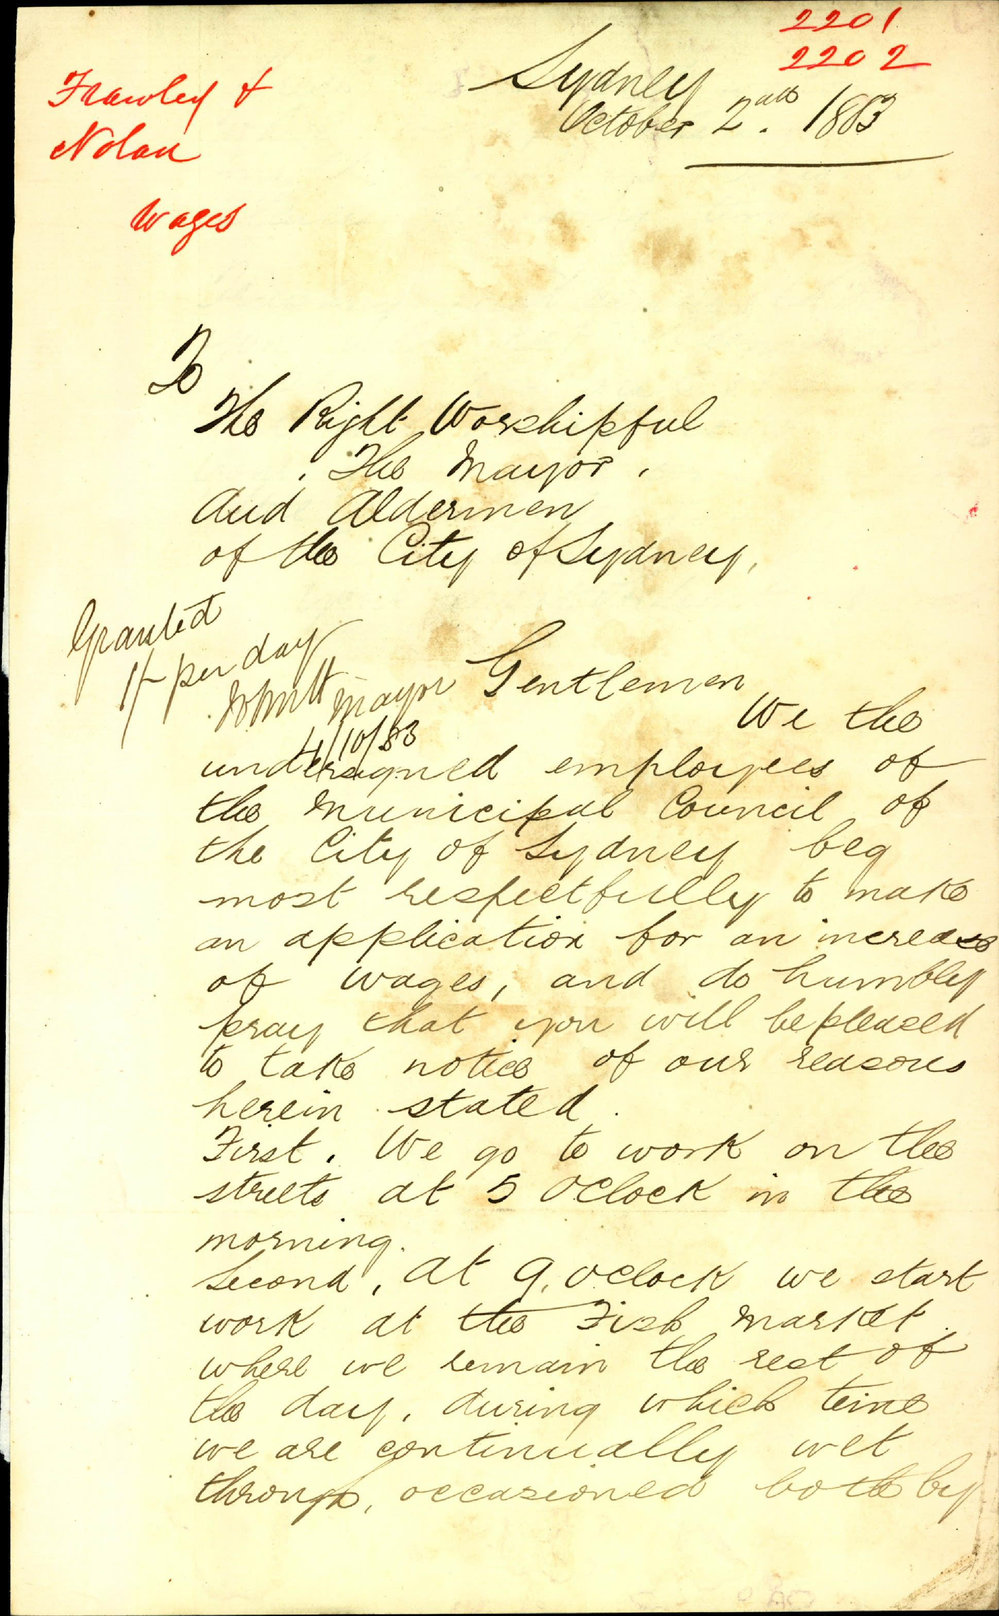 2201
2202
Frawley &
Nolan
Wages
Sydney
October 2nd. 1883
To
The Right Worshipful
. The Mayor .
And Aldermen
of the City of Sydney,
Granted
1/- per day
Mayor
4/10/83
Gentlemen
We the
undersigned employees of
the Municipal Council of
the City of Sydney beg
most respectfully to make
an application for an increase
of wages, and do humbly
pray that you will be pleased
to take notice of our reasons
herein stated.
First. We go to work on the
streets at 5 OClock in the
morning.
Second, At 9, oclock we start
work at the Fish Market.
where we remain the rest of
the day, during which time
we are continually wet
through, occasioned both by